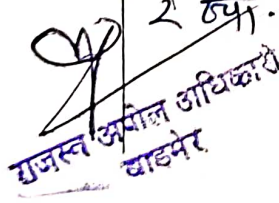 2 न्या.
राजस्व अपील अधिकारी
बाड़मेर